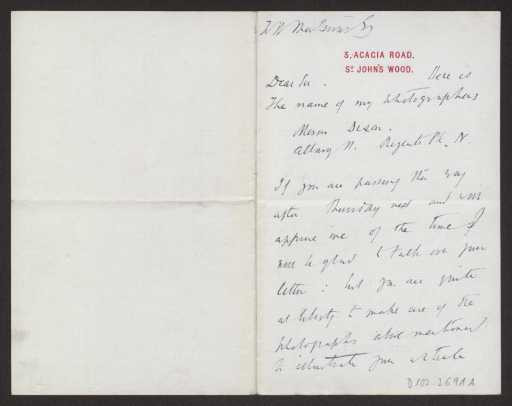 3, ACACIA ROAD,
St JOHN'S WOOD.
Dear Sir. Here is
the name of my photographers
Messrs
Albany St. Regents Pk. N.
If you are passing this way
after Thursday next and will
apprise me of the time I
will be glad to talk over your
letter: but you are quite
at liberty to make use of the
photographs above mentioned
to illustrate your article
D102-269AA